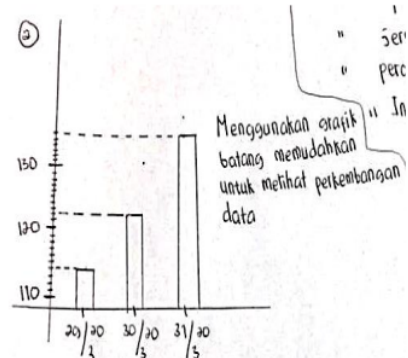 ②
"
" Ser
" perc
" In
Menggunakan grafik
batang memudahkan
untuk melihat perkembangan
data
130
120
110
30/20 31/20
3 3